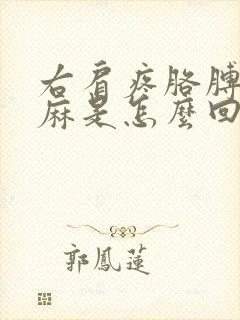 右肩疼胳膊
麻是怎麼回
郭鳳蓮